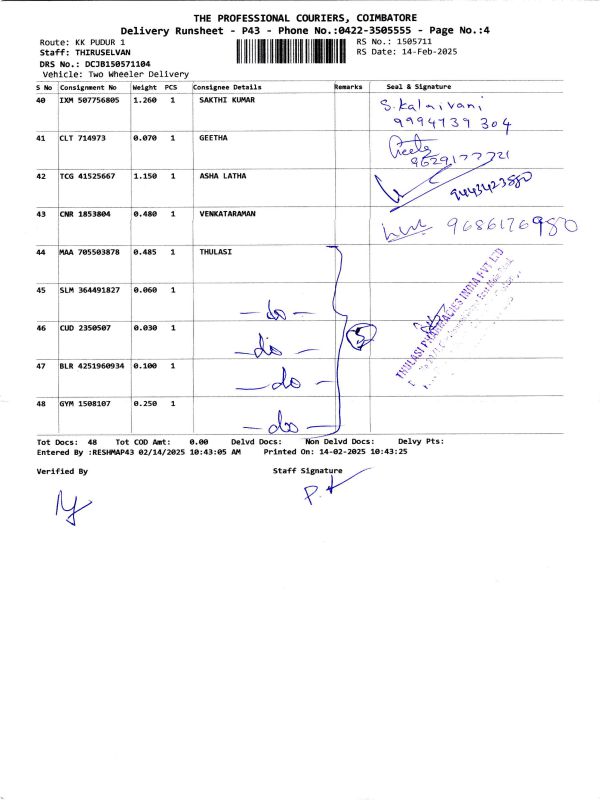 THE PROFESSIONAL COURIERS, COIMBATORE
Delivery Runsheet - P43 - Phone No.:0422-3505555 - Page No.:4
Route: KK PUDUR 1 RS No.: 1505711
Staff: THIRUSELVAN RS Date: 14-Feb-2025
DRS No.: DCJB150571104
Vehicle: Two Wheeler Delivery
S No Consignment No Weight PCS Consignee Details Remarks Seal & Signature
40 IXM 507756805 1.260 1 SAKTHI KUMAR S.Kalaivani
9994739 304
41 CLT 714973 0.070 1 GEETHA Geetha
9629177721
42 TCG 41525667 1.150 1 ASHA LATHA
9443423580
43 CNR 1853804 0.480 1 VENKATARAMAN 9686176980
44 MAA 705503878 0.485 1 THULASI
45 SLM 364491827 0.060 1
- do -
46 CUD 2350507 0.030 1 5
- do -
47 BLR 4251960934 0.100 1
- do -
48 GYM 1508107 0.250 1
- do -
THULASI PHARMACIES INDIA PVT LTD
Tot Docs: 48 Tot COD Amt: 0.00 Delvd Docs: Non Delvd Docs: Delvy Pts:
Entered By :RESHMAP43 02/14/2025 10:43:05 AM Printed On: 14-02-2025 10:43:25
Verified By Staff Signature